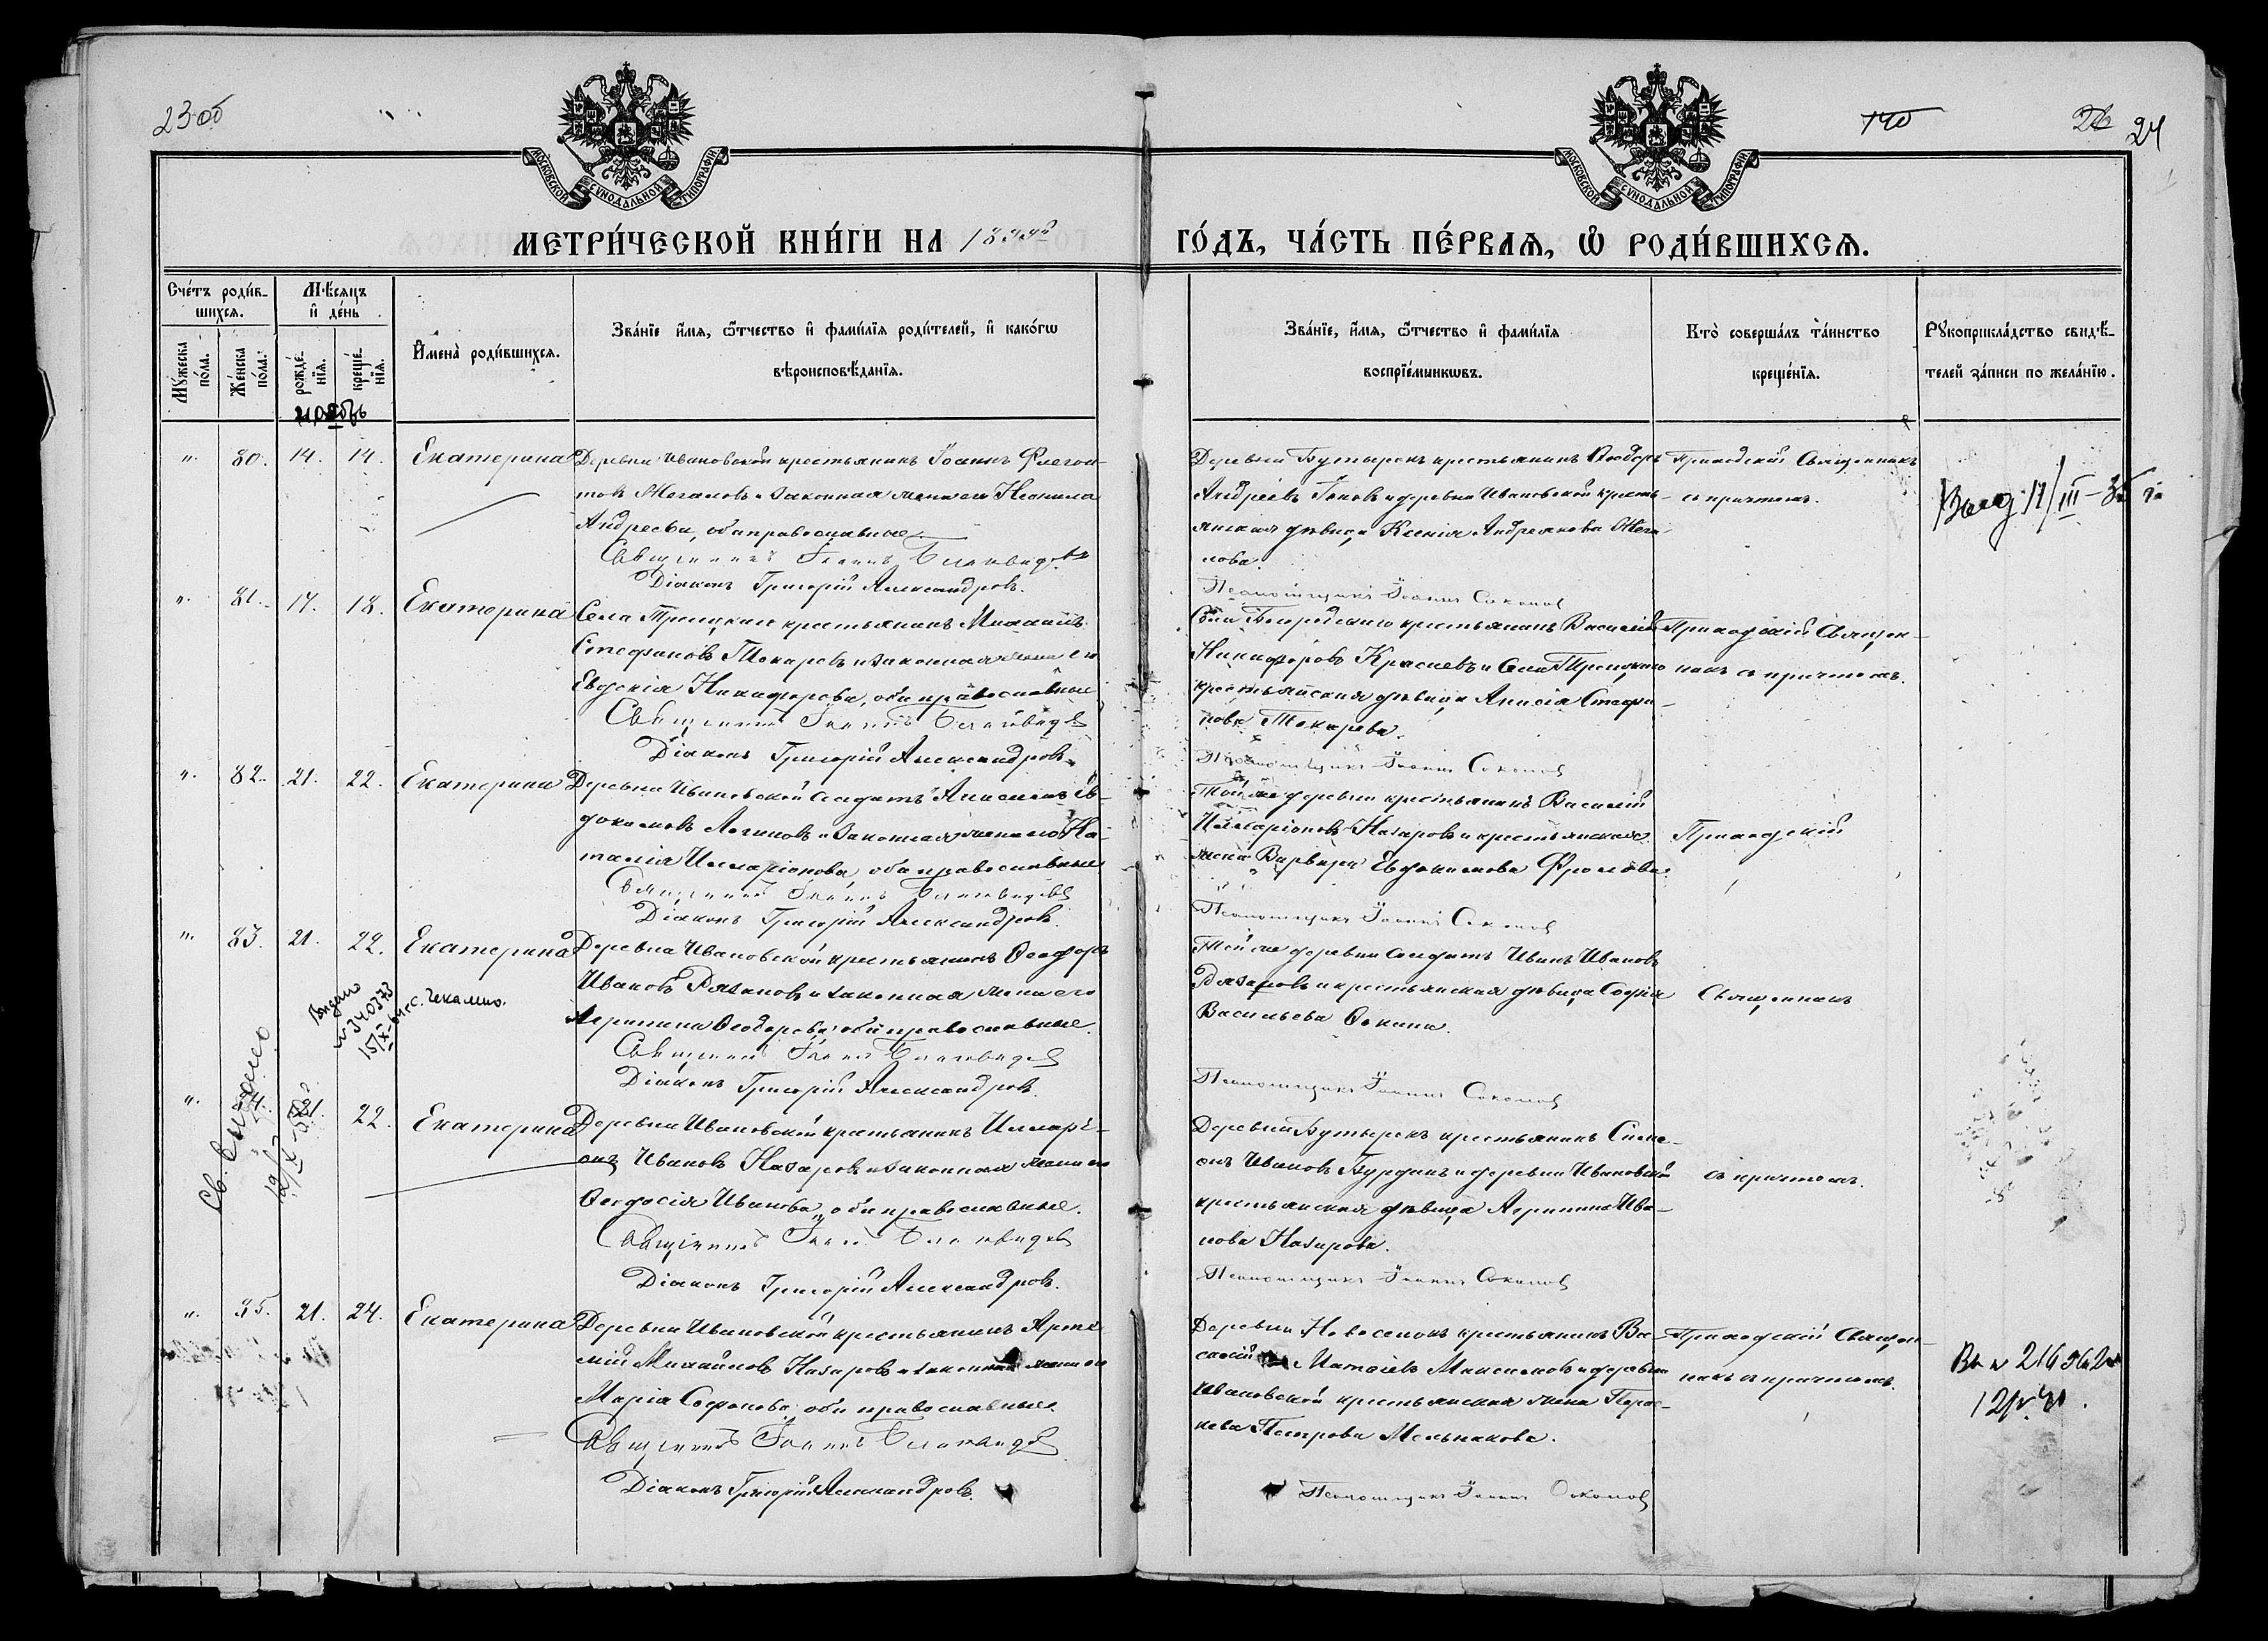 23 об
140
24
МОСКОВСКОЙ СУНОДАЛЬНОЙ ТИПОГРАФІИ.
МОСКОВСКОЙ СУНОДАЛЬНОЙ ТИПОГРАФІИ.
МЕТРИ́ЧЕСКОЙ КНИ́ГИ НА 1899й ГО́ДЪ, ЧА́СТЬ ПЕ́РВАѦ, Ѡ РОДИ́ВШИХСѦ.
Сче́тъ роди́вшихсѧ.
Мꙋ́жеска по́ла.
Же́нска по́ла.
Мѣ́сѧцъ и де́нь
рожде́нїѧ.
креще́нїѧ.
Имена̀ роди́вшихсѧ.
Зва́нїе и́мѧ, ѿчество и фами́лїѧ роди́телей, и како́гѡ
вѣроисповѣ́данїѧ.
Зва́нїе, и́мѧ, ѿчество и фами́лїѧ
воспрїе́мникѡвъ.
Кто̀ соверша́лъ та́инство
креще́нїѧ.
Рꙋкоприкла́дство свидѣ́-
телей за́писи по жела́нїю.
Ноябрь
" 80. 14. 14. Екатерина
Деревни Ивановской крестьянинъ Іоаннъ Флегон-
товъ Жегаловъ и законная жена его Неонила
Андреева, оба православные.
Священникъ Іоаннъ
Діаконъ Григорій Александровъ.
Деревни Бутырокъ крестьянинъ Ѳеодоръ
Андреевъ и деревни Ивановской кресть-
янская дѣвица Ксенія Андреянова Жега-
лова.
Псаломщикъ Іоаннъ Соколов
Приходскій Священникъ
съ причтомъ.
" 81. 17. 18. Екатерина
Села Троицкаго крестьянинъ Михаилъ
Стефановъ Токаревъ и законная жена его
Евдокія Никифорова, оба православные
Священникъ Іоаннъ
Діаконъ Григорій Александровъ.
Села крестьянинъ Василій
Никифоровъ и села Троицкаго
крестьянская дѣвица Анисія Стефа-
нова Токарева.
Псаломщикъ Іоаннъ Соколов
Приходскій Священ-
никъ съ причтомъ.
" 82. 21. 22. Екатерина
Деревни Ивановской солдатъ Ев-
докимовъ Логиновъ и законная жена его На-
талія Илларіонова, оба православные
Священникъ Іоаннъ
Діаконъ Григорій Александровъ.
Той же деревни крестьянинъ Василій
Илларіоновъ Назаровъ и крестьянская
жена Варвара Евдокимова Фролова.
Псаломщикъ Іоаннъ Соколов
Приходскій
" 83. 21. 22. Екатерина
Деревни Ивановской крестьянинъ Ѳеодоръ
Ивановъ Рязановъ и законная жена его
Агрипина Ѳеодорова, оба православные.
Священникъ Іоаннъ
Діаконъ Григорій Александровъ.
Той же деревни солдатъ Иванъ Ивановъ
Рязановъ и крестьянская дѣвица Софія
Васильева
Псаломщикъ Іоаннъ Соколов
Священникъ
Выдано
№ 340373
15/X
" 84. 21. 22. Екатерина
Деревни Ивановской крестьянинъ Илларі-
онъ Ивановъ Назаровъ и законная жена его
Ѳеодосія Иванова, оба православные.
Священникъ Іоаннъ
Діаконъ Григорій Александровъ.
Деревни Бутырокъ крестьянинъ Симе-
онъ Ивановъ и деревни Ивановской
крестьянская дѣвица Агрипина Ива-
нова Назарова.
Псаломщикъ Іоаннъ Соколов
съ причтомъ.
" 85. 21. 24. Екатерина
Деревни Ивановской крестьянинъ Арте-
мій Михайловъ Назаровъ и законная жена его
Марія Софонова, оба православные.
Священникъ Іоаннъ
Діаконъ Григорій Александровъ.
Деревни Новоселокъ крестьянинъ Ва-
силій Матвіевъ Максимовъ и деревни
Ивановской крестьянская жена Парас-
кева Петрова Мельникова.
Псаломщикъ Іоаннъ Соколов
Приходскій Священ-
никъ съ причтомъ.